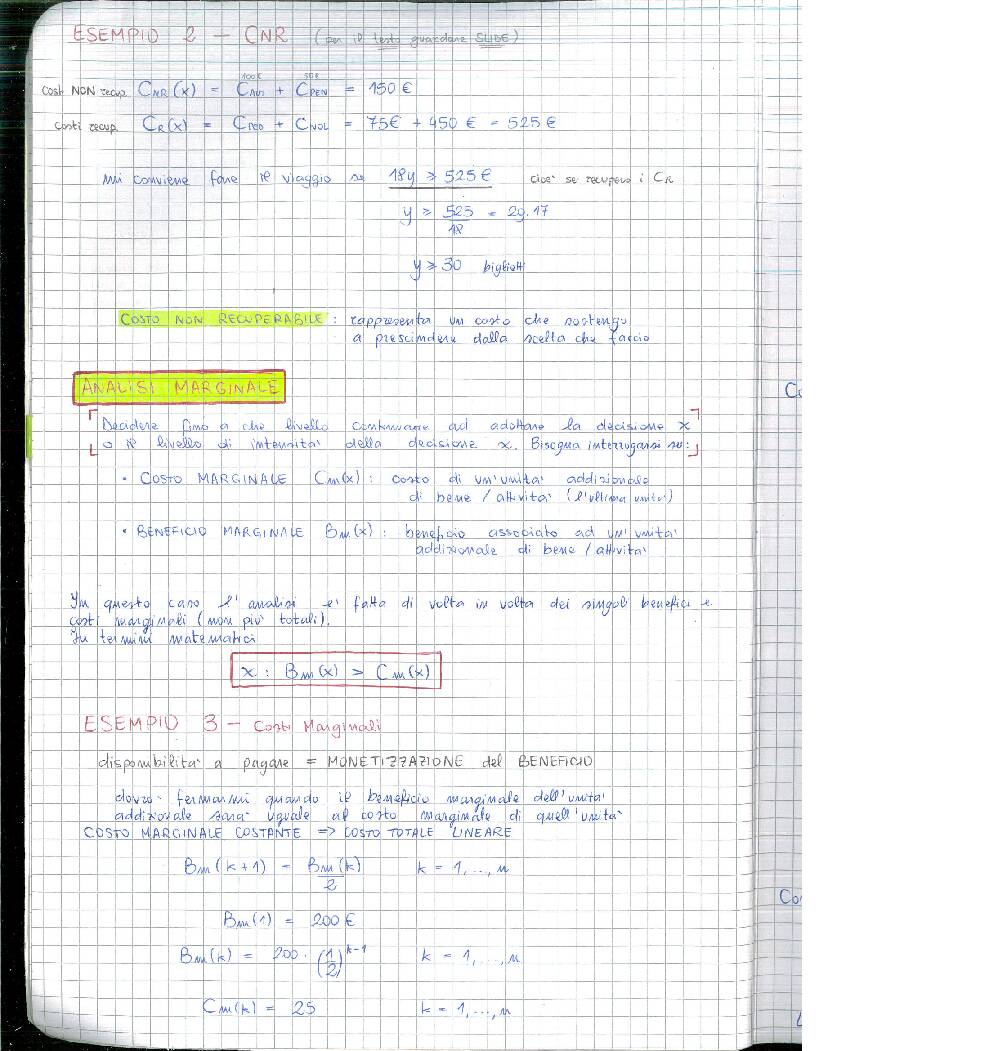 ESEMPIO 2 - CNR (per il testo guardare SLIDE)
100€ 50€
Costi NON recup. CNR(x) = CAUT + CPEN = 150 €
Costi recup. CR(x) = CPED + CNOL = 75€ + 450 € = 525 €
Mi conviene fare il viaggio se 18y ≥ 525 € cioe' se recupero i CR
y ≥ 525/18 = 29.17
y ≥ 30 biglietti
COSTO NON RECUPERABILE : rappresenta un costo che sostengo
a prescindere dalla scelta che faccio
ANALISI MARGINALE
Decidere fino a che livello continuare ad adottare la decisione x
o il livello di intensita' della decisione x. Bisogna interrogarsi su:
• COSTO MARGINALE Cm(x) : costo di un'unita' addizionale
di bene / attivita' (l'ultima unita')
• BENEFICIO MARGINALE Bm(x) : beneficio associato ad un'unita'
addizionale di bene / attivita'
In questo caso l'analisi e' fatta di volta in volta dei singoli benefici e
costi marginali (non piu' totali).
In termini matematici
x : Bm(x) > Cm(x)
ESEMPIO 3 - Costi Marginali
disponibilita' a pagare = MONETIZZAZIONE del BENEFICIO
dovro' fermarmi quando il beneficio marginale dell'unita'
addizionale sara' uguale al costo marginale di quell'unita'
COSTO MARGINALE COSTANTE => COSTO TOTALE LINEARE
Bm(k+1) = Bm(k)/2 k = 1,...,n
Bm(1) = 200 €
Bm(k) = 200 · (1/2)^k-1 k = 1,...,n
Cm(k) = 25 k = 1,...,n